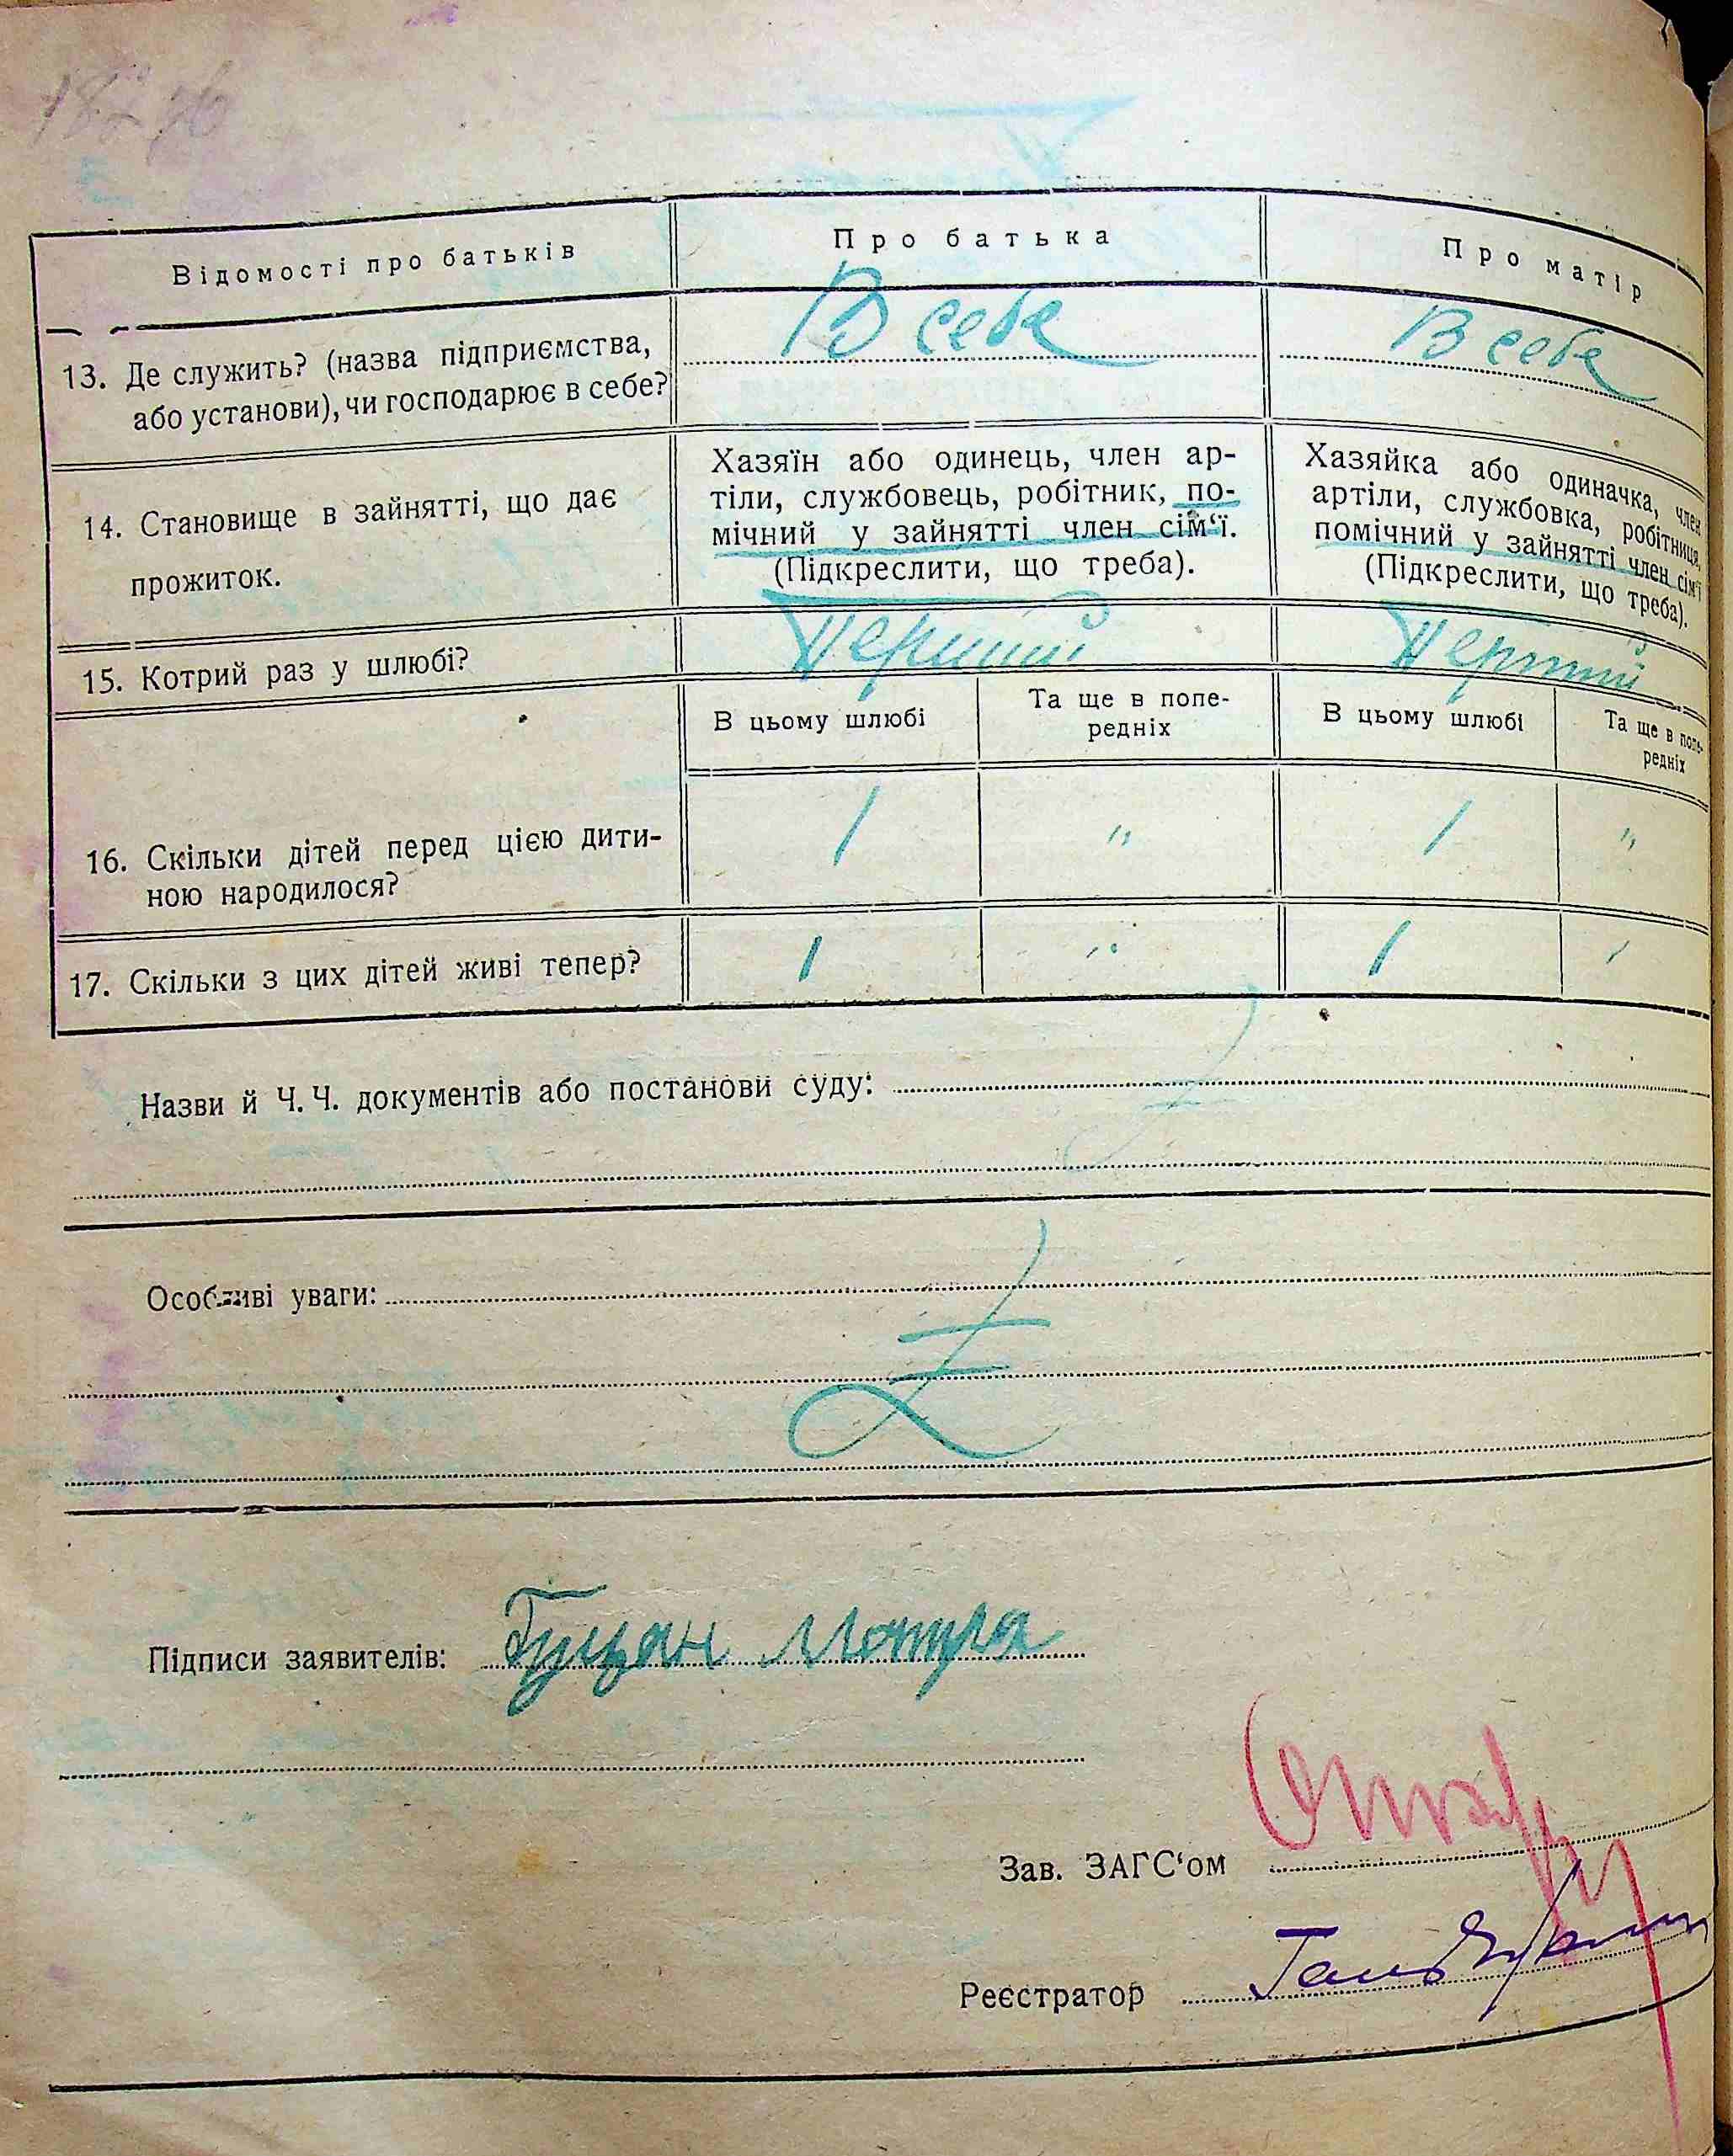 Відомості про батьків
Про батька
Про матір
13. Де служить? (назва підприємства,
або установи), чи господарює в себе?
В себе
В себе
14. Становище в зайнятті, що дає
прожиток.
Хазяїн або одинець, член ар-
тіли, службовець, робітник, по-
мічний у зайнятті член сім‘ї.
(Підкреслити, що треба).
Хазяйка або одиначка, член
артіли, службовка, робітниця,
помічний у зайнятті член сім‘ї
(Підкреслити, що треба).
15. Котрий раз у шлюбі?
Перший
Перший
В цьому шлюбі
Та ще в попе-
редніх
В цьому шлюбі
Та ще в попе-
редніх
16. Скільки дітей перед цією дити-
ною народилося?
1
"
1
"
17. Скільки з цих дітей живі тепер?
1
"
1
Назви й Ч. Ч. документів або постанови суду:
Особливі уваги:
Підписи заявителів: Гуцан Мотря
Зав. ЗАГС‘ом
Реєстратор